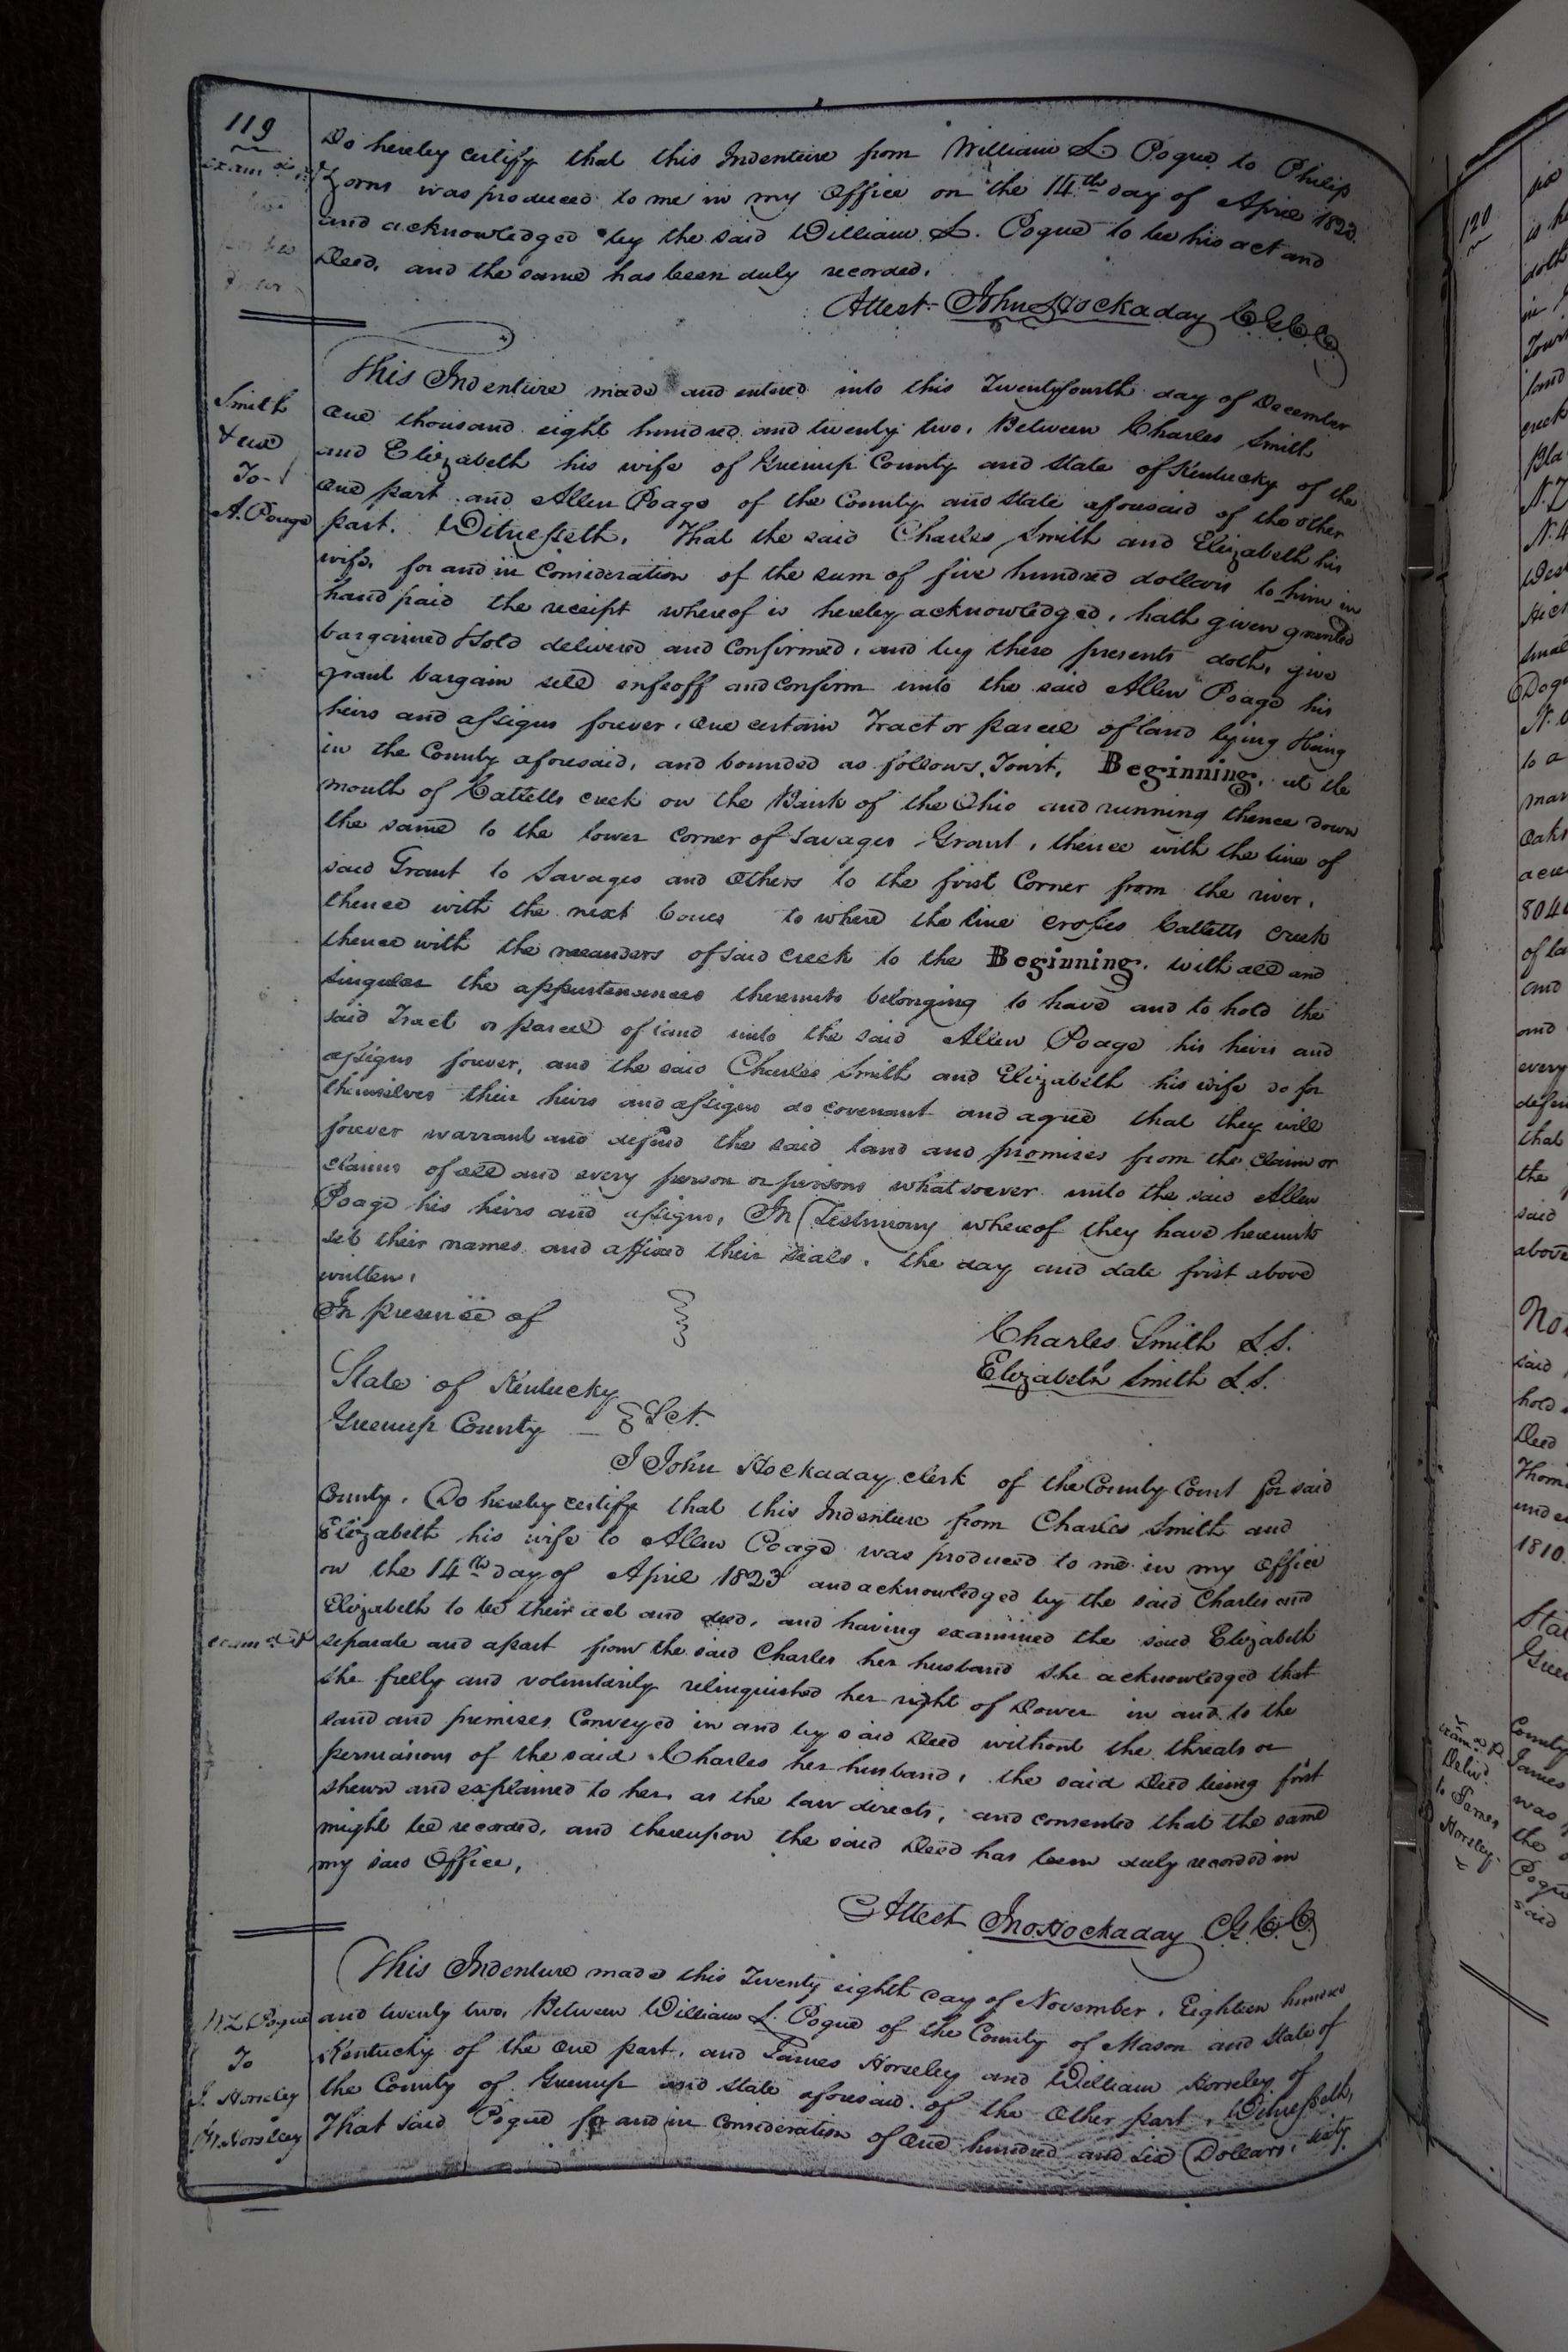 119
Do hereby certify that this Indenture from William L. Pogue to Philip
Zorns was produced to me in my Office on the 14th day of April 1823
and acknowledged by the said William L. Pogue to be his act and
Deed, and the same has been duly recorded.
Attest John Hockaday C.G.C.C.
Smith
& ux
To
A. Poage
This Indenture made and entered into this Twenty fourth day of December
One thousand eight hundred and twenty two, Between Charles Smith
and Elizabeth his wife of Greenup County and State of Kentucky of the
One part and Allen Poage of the County and State aforesaid of the other
part. Witnesseth, That the said Charles Smith and Elizabeth his
wife, for and in Consideration of the sum of five hundred dollars to him in
hand paid the receipt whereof is hereby acknowledged, hath given granted
bargained & sold delivered and Confirmed, and by these presents doth, give
grant bargain sell enfeoff and confirm unto the said Allen Poage his
heirs and assigns forever, One certain Tract or parcel of land lying & being
in the County aforesaid, and bounded as follows, Towit, Beginning, at the
mouth of Catletts creek on the Bank of the Ohio and running thence down
the same to the lower corner of Savages Grant, thence with the line of
said Grant to Savages and Others to the first Corner from the river,
thence with the next to where the line crosses Catletts creek
thence with the meanders of said creek to the Beginning. With all and
singular the appurtenances thereunto belonging to have and to hold the
said Tract or parcel of land unto the said Allen Poage his heirs and
assigns forever, and the said Charles Smith and Elizabeth his wife do for
themselves their heirs and assigns do covenant and agree that they will
forever warrant and defend the said land and promises from the claim or
claims of all and every person or persons whatsoever unto the said Allen
Poage his heirs and assigns, In Testimony whereof they have hereunto
set their names and affixed their seals, the day and date first above
written,
In presence of
Charles Smith L.S.
Elizabeth Smith L.S.
State of Kentucky
Greenup County Sct.
I John Hockaday clerk of the County Court for said
County, Do hereby certify that this Indenture from Charles Smith and
Elizabeth his wife to Allen Poage was produced to me in my Office
on the 14th day of April 1823 and acknowledged by the said Charles and
Elizabeth to be their act and deed, and having examined the said Elizabeth
separate and apart from the said Charles her husband she acknowledged that
she freely and voluntarily relinquished her right of Dower in and to the
land and premises Conveyed in and by said Deed without the threats or
persuasions of the said Charles her husband, the said Deed being first
shewn and explained to her, as the law directs, and consented that the same
might be recorded, and thereupon the said Deed has been duly recorded in
my said Office,
Attest Jno Hockaday C.G.C.C.
W. L. Pogue
To
J. Horseley
W. Horseley
This Indenture made this Twenty eighth day of November, Eighteen hundred
and twenty two, Between William L. Pogue of the County of Mason and State of
Kentucky of the One part, and James Horseley and William Horseley of
the County of Greenup and State aforesaid of the Other part, Witnesseth,
That said Pogue for and in Consideration of One hundred and six Dollars, sixty
120
said
above
said
hold
Deed
1810.
County
James
was
the
Pogue
said
Deliv.
to James
Horseley